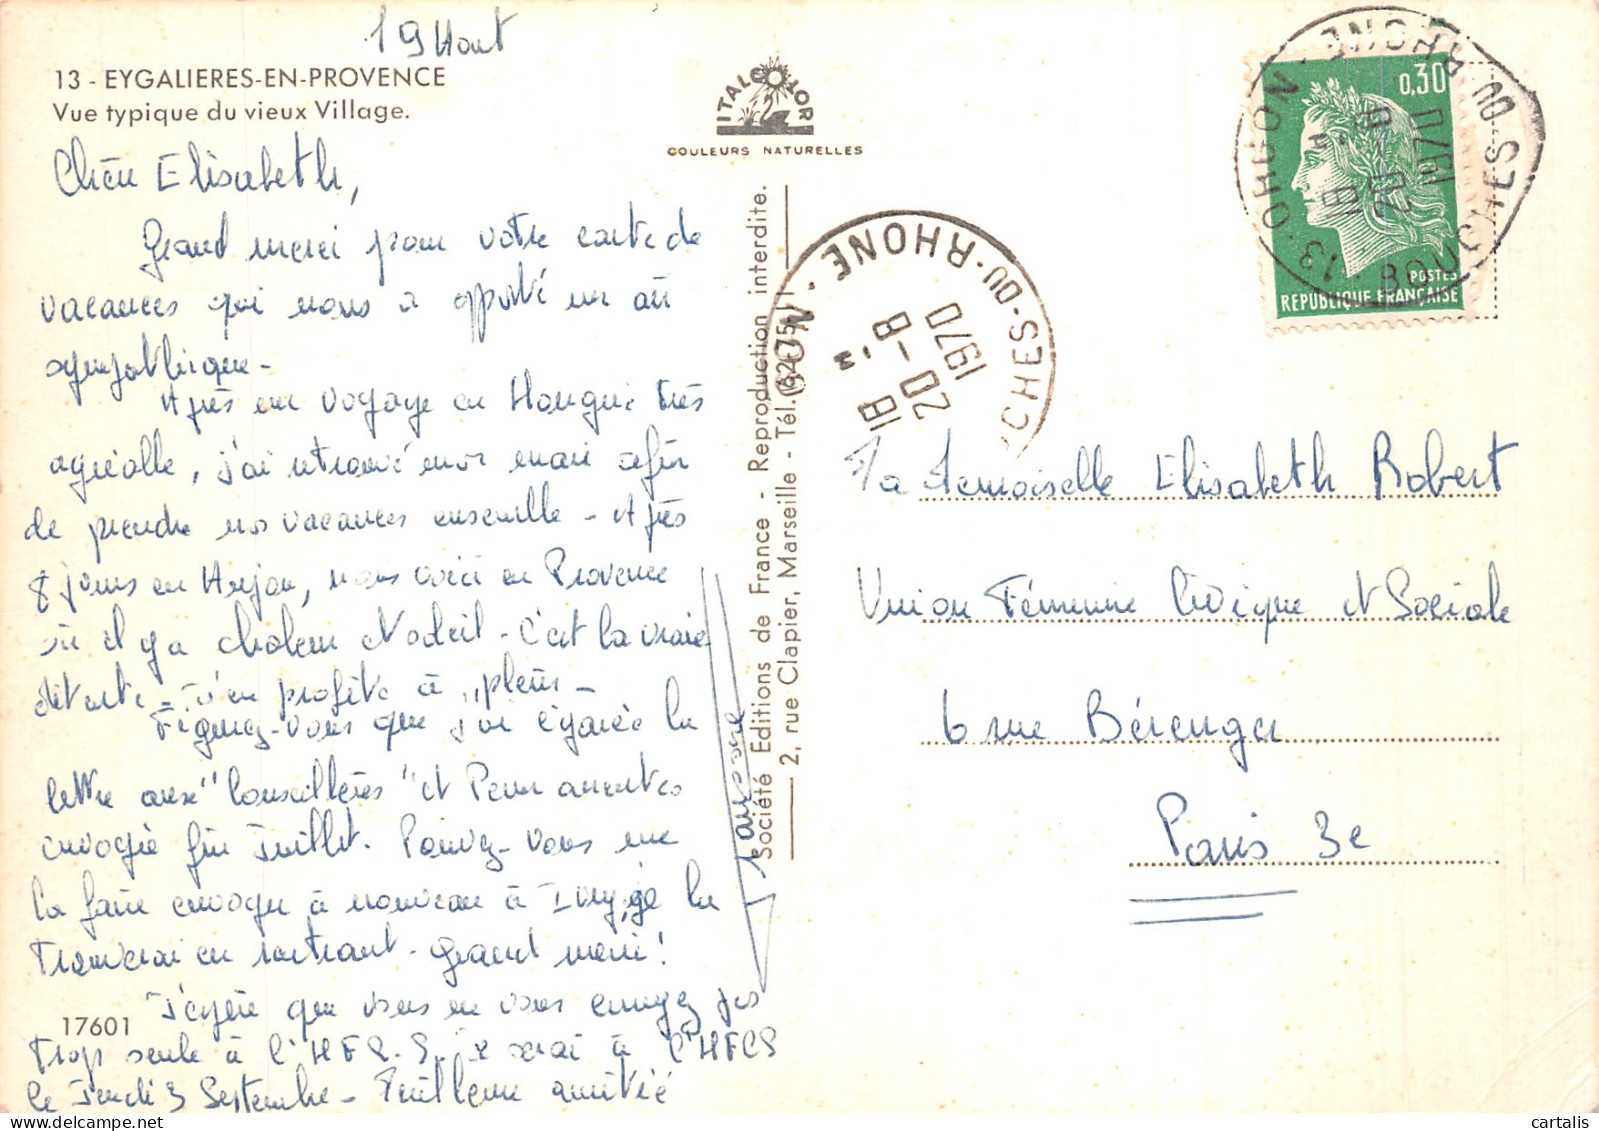 19 Aout
13 - EYGALIERES-EN-PROVENCE
Vue typique du vieux Village.
ITALCOLOR
COULEURS NATURELLES
Chère Elisabeth,
Grand merci pour votre carte de
vacances qui nous a apporté un air
sympathique -
Après un voyage en Hongrie très
agréable, j'ai retrouvé mon mari afin
de prendre nos vacances ensemble - Après
8 jours en Anjou, nous voici en Provence
où il y a chaleur et soleil - C'est la vraie
détente - J'en profite à "plein -
Figurez-vous que j'ai égarée la
lettre aux "Conseillères" et Permanentes
envoyée fin Juillet. Pouvez-vous me
la faire envoyer à nouveau à Ivry, je la
trouverai en rentrant - grand merci !
J'espère que vous ne vous ennuyez pas
trop seule à l'U F C S. Je serai à l'UFCS
le Jeudi 3 Septembre - Meilleure amitié
17601
Société Editions de France - Reproduction interdite.
2, rue Clapier, Marseille - Tél.
13 - ORGON - BOUCHES DU RHONE
18 H
20 - 8
1970
ORGON - BOUCHES-DU-RHONE
18 H
20 - 8
1970
0,30
POSTES
REPUBLIQUE FRANÇAISE
Mademoiselle Elisabeth Robert
Union Féminine Civique et Sociale
6 rue Béranger
Paris 3e
cartalis